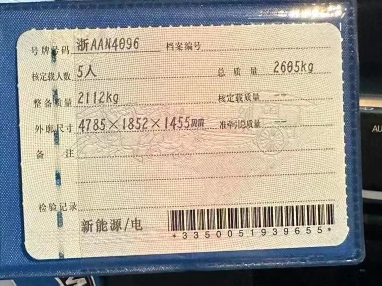 号牌号码 浙AAN4096 档案编号
核定载人数 5人 总质量 2605kg
整备质量 2112kg 核定载质量 --
外廓尺寸 4785×1852×1455 准牵引总质量 --
备注
检验记录
新能源/电
*3350051939655*
AU